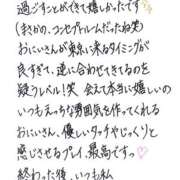 過ごすことができて嬉しかったです
(まさかの、コンセプトルームだったね笑)
おにいさんが東京に来るタイミングが
良すぎて、逆に合わせてきてるのを
疑うレベル!笑 会えて本当に嬉しいの
いつもえっちな雰囲気を作ってくれる
おにいさん、優しいタッチやじっくりと
感じさせるプレイ、最高ですっ♡
終わった後、いつも私